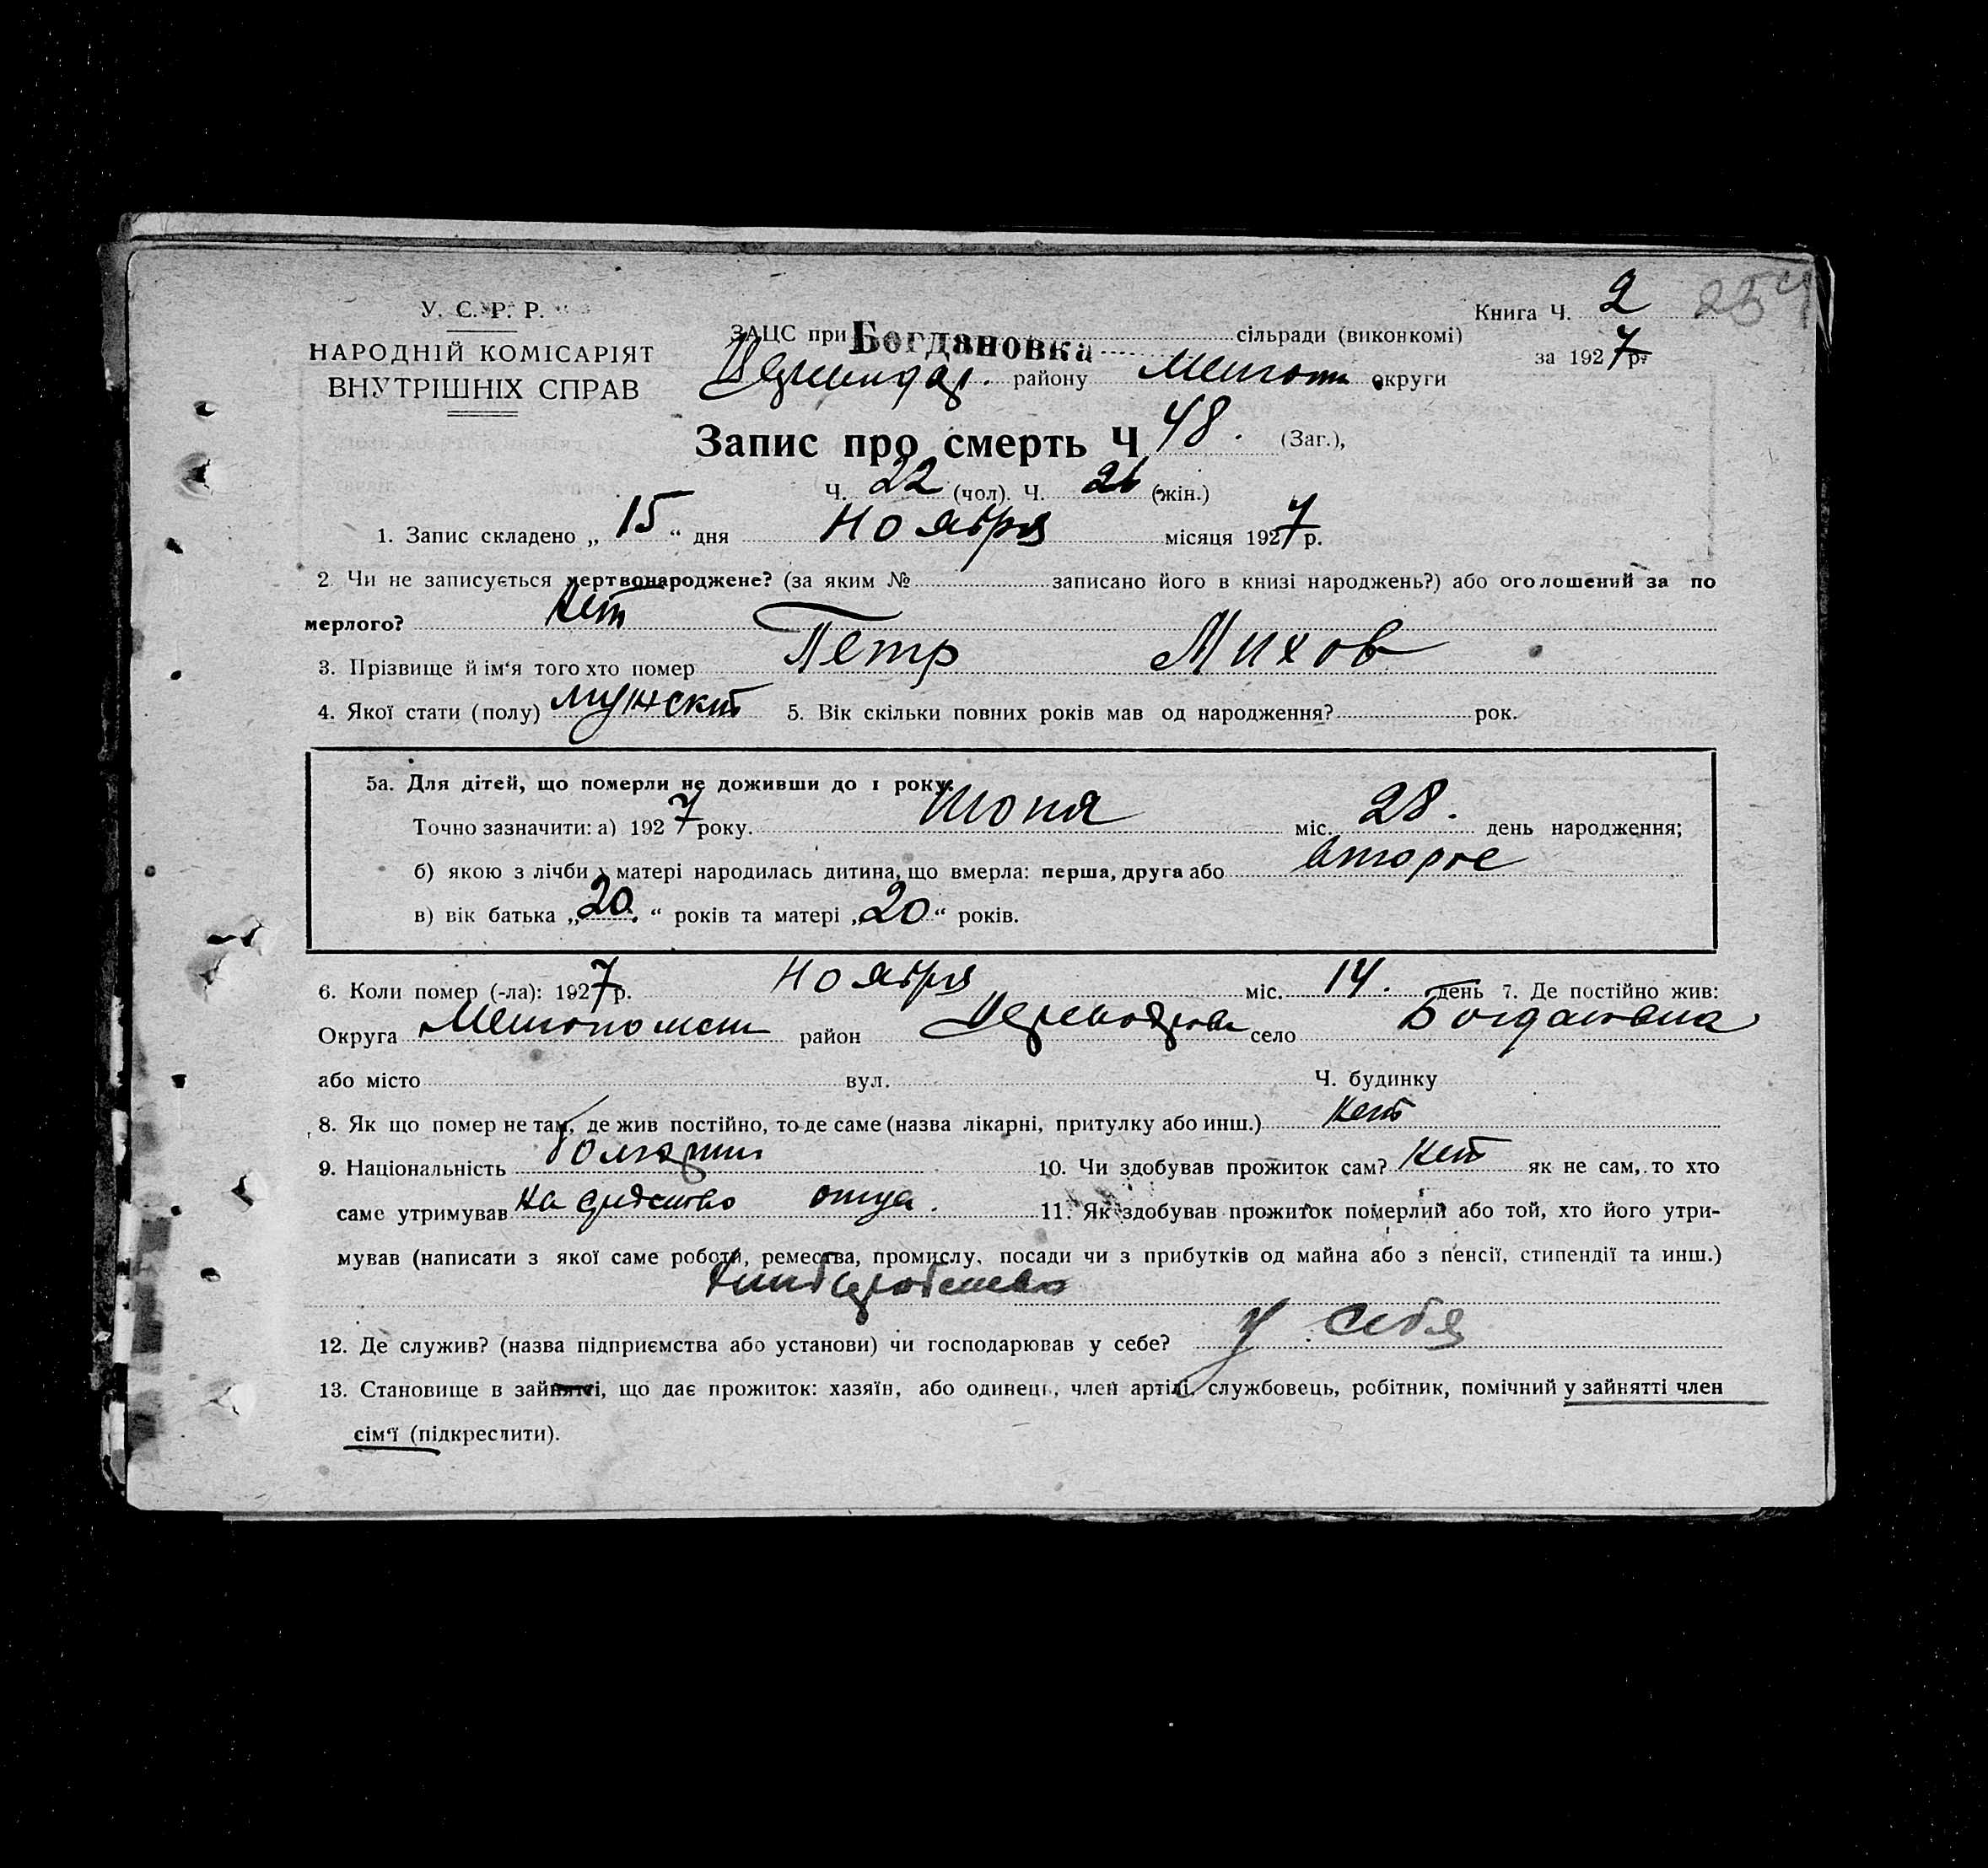 254
Книга Ч. 2
У. С. Р. Р.
НАРОДНІЙ КОМІСАРІЯТ
ВНУТРІШНІХ СПРАВ
ЗАЦС при Богдановка сільради (виконкомі)
за 1927 р.
району Мелітоп округи
Запис про смерть Ч 48. (Заг.),
Ч. 22 (чол). Ч. 26 (жін.)
1. Запис складено „ 15 “ дня Ноября місяця 1927 р.
2. Чи не записується мертвонароджене? (за яким № записано його в книзі народжень?) або оголошений за по
мерлого? Нет
3. Прізвище й ім‘я того хто помер Петр Михов
4. Якої стати (полу) мужской 5. Вік скільки повних років мав од народження? рок.
5а. Для дітей, що померли не доживши до 1 року.
Точно зазначити: а) 1927 року. Июня міс. 28. день народження;
б) якою з лічби у матері народилась дитина, що вмерла: перша, друга або второе
в) вік батька „20.“ років та матері „20“ років.
6. Коли помер (-ла): 1927 р. Ноября міс. 14. день 7. Де постійно жив:
Округа район село Богдановка
або місто вул. Ч. будинку
8. Як що помер не там, де жив постійно, то де саме (назва лікарні, притулку або инш.) Нет
9. Національність болгарин 10. Чи здобував прожиток сам? Нет як не сам, то хто
саме утримував на средство отца. 11. Як здобував прожиток померлий або той, хто його утри-
мував (написати з якої саме роботи, ремества, промислу, посади чи з прибутків од майна або з пенсії, стипендії та инш.)
12. Де служив? (назва підприємства або установи) чи господарював у себе? У себя
13. Становище в зайнятті, що дає прожиток: хазяїн, або одинець, член артілі, службовець, робітник, помічний у зайнятті член
сім‘ї (підкреслити).